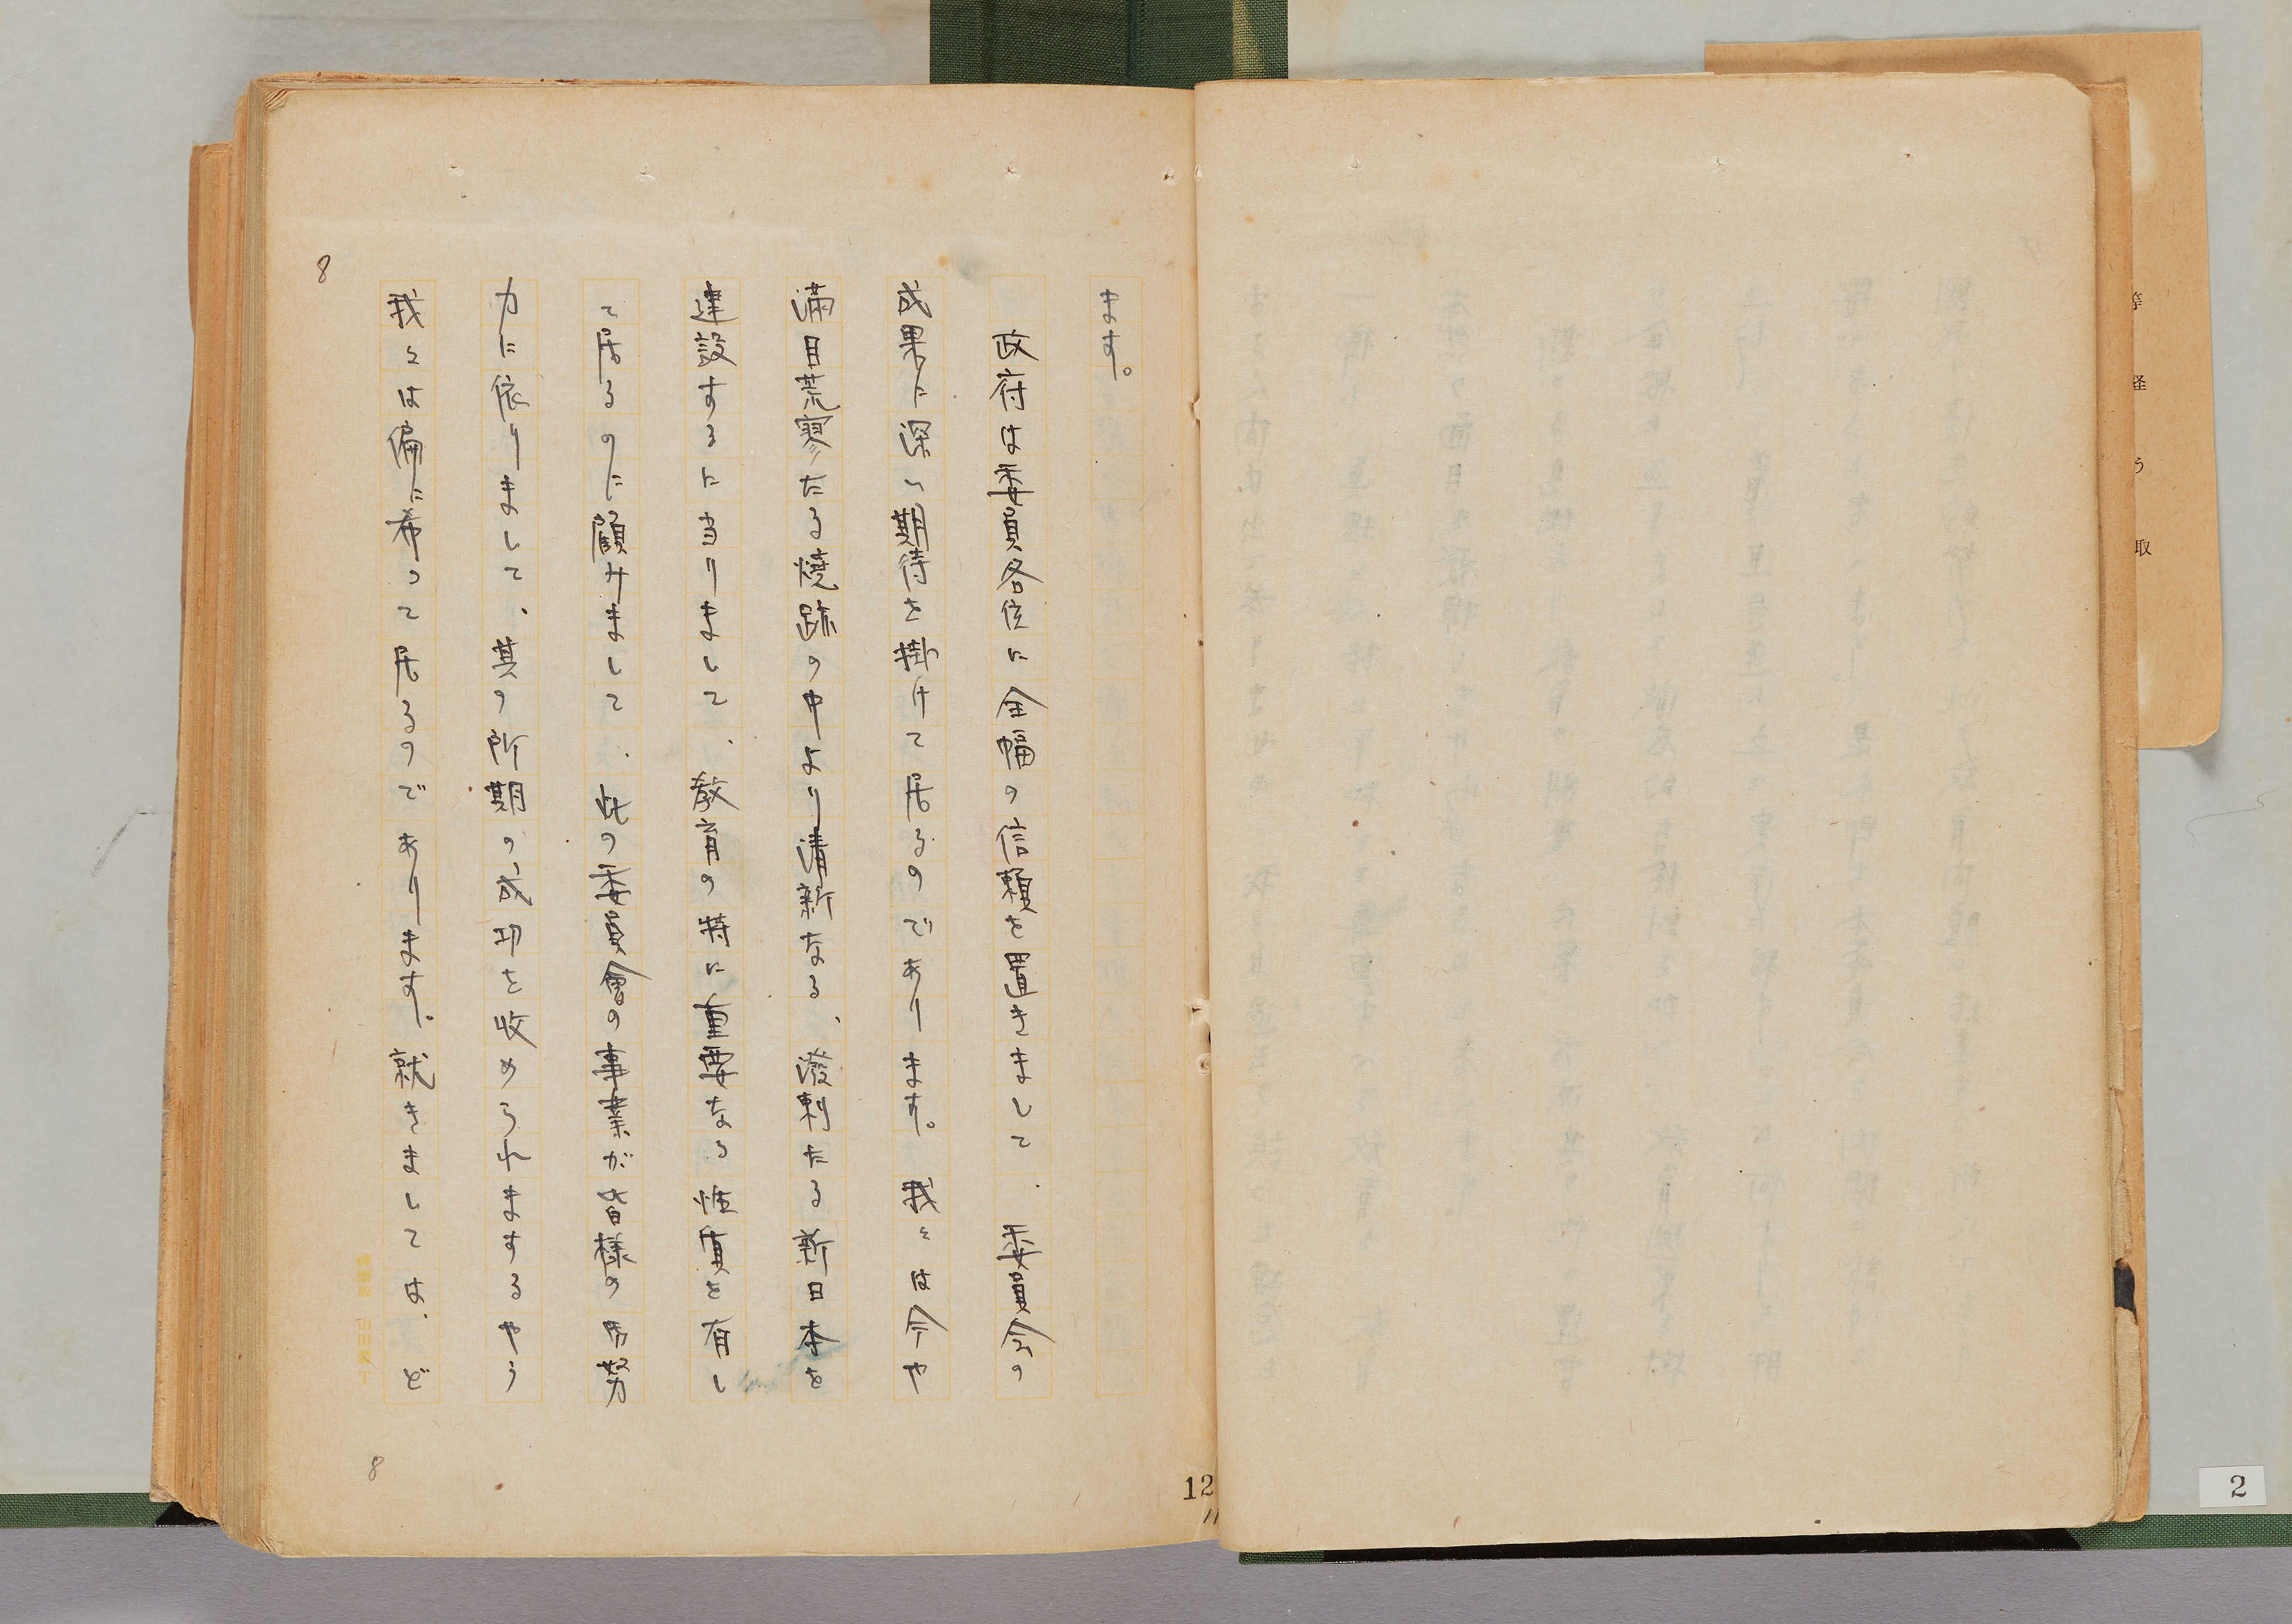 等
経
う
取
ます。
政府は委員各位に全幅の信頼を置きまして、委員会の
成果に深い期待を掛けて居るのであります。我々は今や
満目荒寥たる焼跡の中より清新なる、溌剌たる新日本を
建設するに当りまして、教育の特に重要なる性質を有し
て居るのに顧みまして、此の委員會の事業が皆様の御努
力に依りまして、其の所期の成功を收められまするやう
我々は偏に希って居るのであります。就きましては、ど
8
8
12
11
2